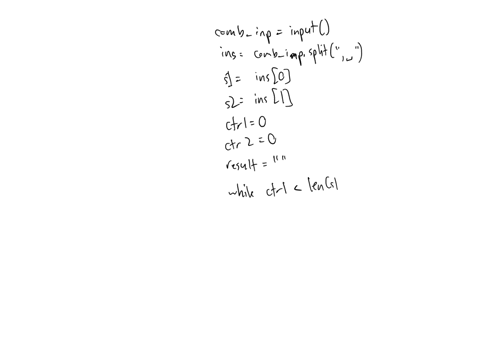 comb_inp = input()
ins = comb_inp.split(",␣")
s1 = ins[0]
s2 = ins[1]
ctr1 = 0
ctr2 = 0
result = ""
while ctr1 < len(s1